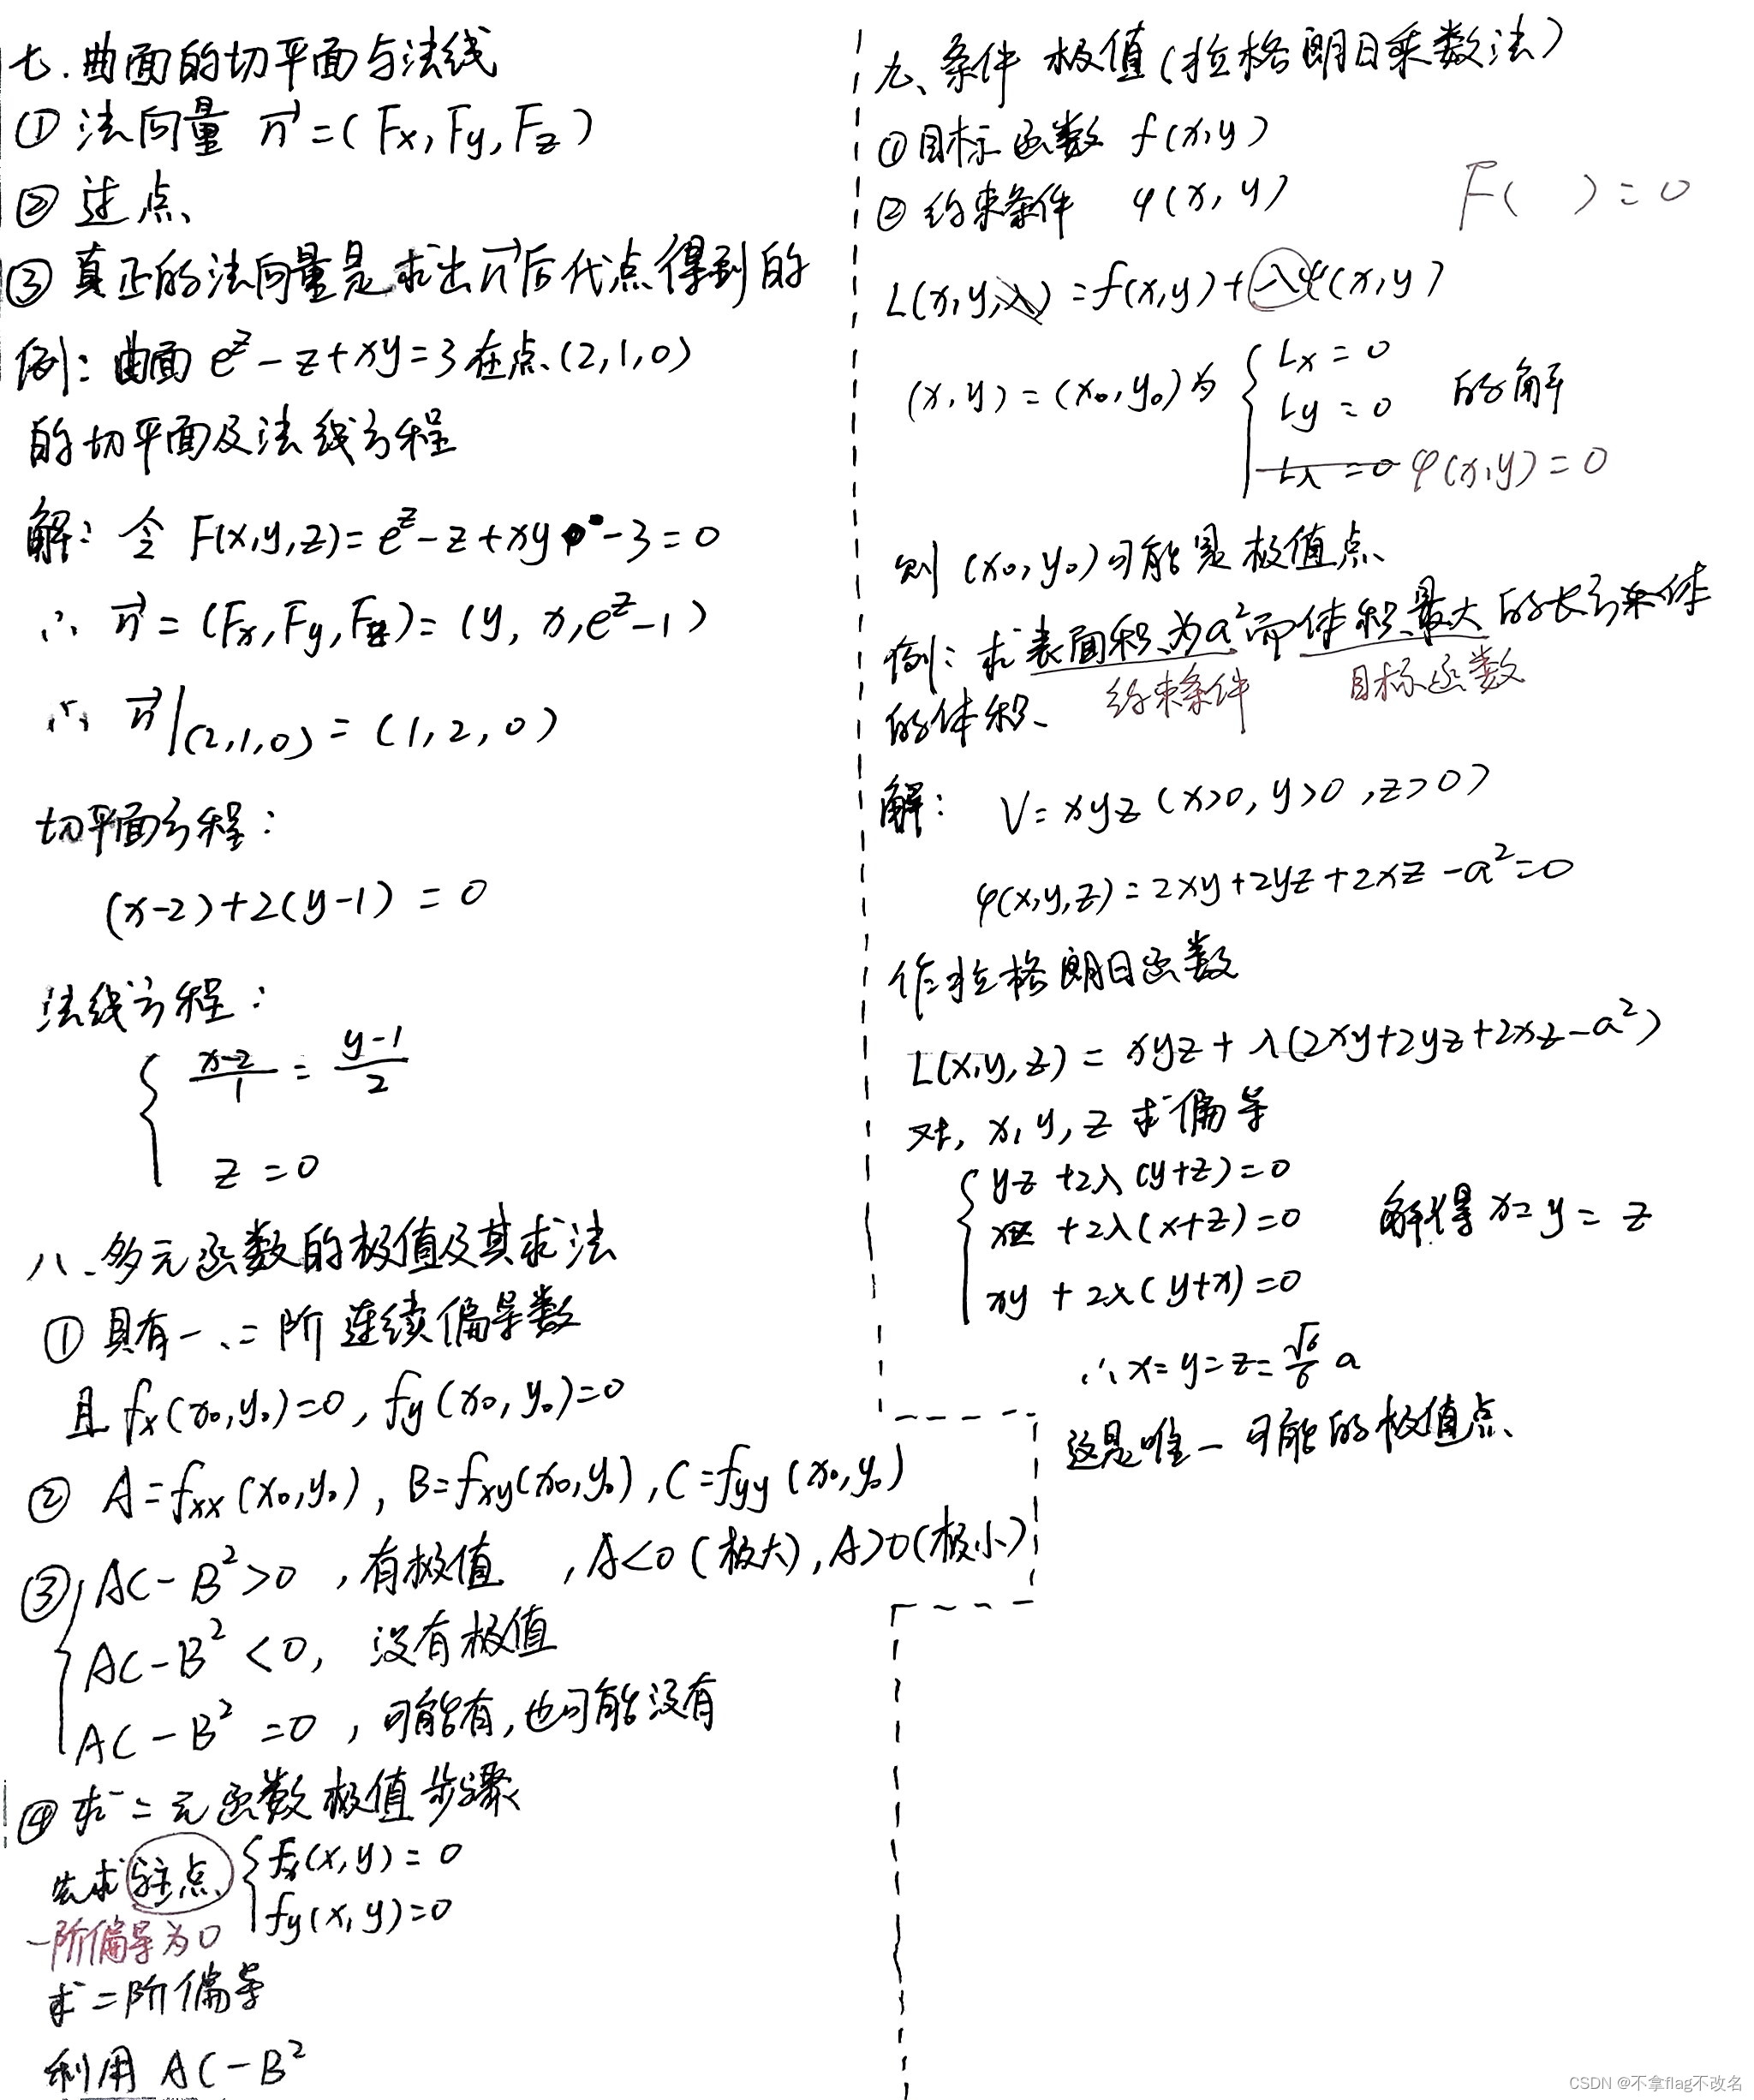 七.曲面的切平面与法线
① 法向量 n⃗=(Fx,Fy,Fz)
② 过点
③ 真正的法向量是求出n⃗后代点得到的
例: 曲面 e^z-z+xy=3在点(2,1,0)
的切平面及法线方程
解: 令 F(x,y,z)=e^z-z+xy-3=0
∴ n⃗=(Fx,Fy,Fz)=(y, x, e^z-1)
∴ n⃗|(2,1,0)=(1,2,0)
切平面方程:
(x-2)+2(y-1)=0
法线方程:
{ (x-2)/1 = (y-1)/2
z=0
八.多元函数的极值及其求法
① 具有一、二阶连续偏导数
且 fx(x₀,y₀)=0, fy(x₀,y₀)=0
② A=fxx(x₀,y₀), B=fxy(x₀,y₀), C=fyy(x₀,y₀)
③ { AC-B²>0, 有极值, A<0(极大), A>0(极小)
AC-B²<0, 没有极值
AC-B²=0, 可能有,也可能没有
④ 求二元函数极值步骤
先求驻点 { fx(x,y)=0
fy(x,y)=0
一阶偏导为0
求二阶偏导
利用 AC-B²
九、条件极值(拉格朗日乘数法)
① 目标函数 f(x,y)
② 约束条件 φ(x,y) F( )=0
L(x,y,λ)=f(x,y)+λφ(x,y)
(x,y)=(x₀,y₀)为 { Lx=0
Ly=0 的解
Lλ=0 φ(x,y)=0
则(x₀,y₀)可能是极值点
例: 求表面积为a²而体积最大的长方体
约束条件 目标函数
的体积
解: V=xyz(x>0,y>0,z>0)
φ(x,y,z)=2xy+2yz+2xz-a²=0
作拉格朗日函数
L(x,y,z)=xyz+λ(2xy+2yz+2xz-a²)
对, x,y,z 求偏导
{ yz+2λ(y+z)=0
xz+2λ(x+z)=0 解得 x=y=z
xy+2λ(y+x)=0
∴x=y=z=√6/6 a
这是唯一可能的极值点
CSDN @不拿flag不改名